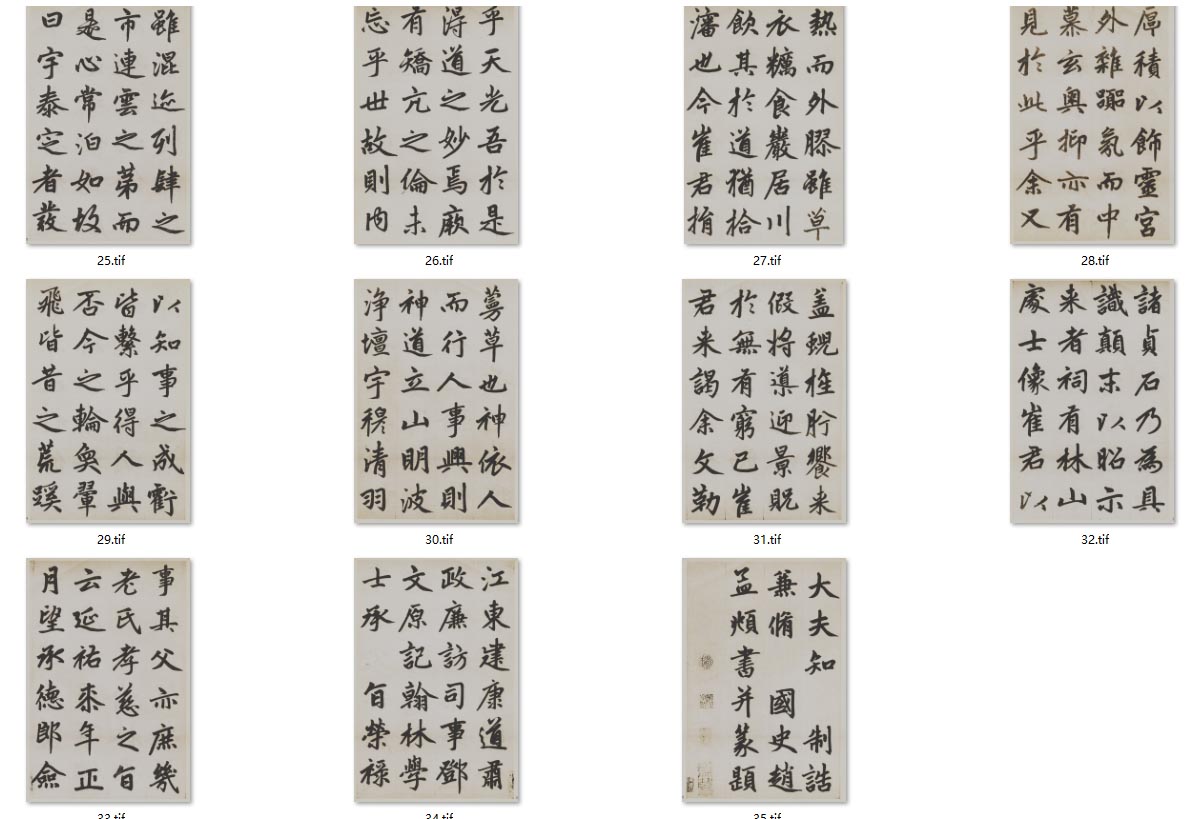 雖混迹列肆之
市連雲之第而
是心常泊如故
曰宇泰定者發
25.tif
乎天光吾於是
得道之妙焉厥
有矯亢之倫未
忘乎世故則内
26.tif
熱而外膠雖草
衣糲食巖居川
飲其於道猶拾
瀋也今崔君捐
27.tif
厚積以飾靈宮
外雜氛而中
慕玄奧抑亦有
見於此乎余又
28.tif
以知事之成虧
皆繫乎得人與
否今之輪奐翬
飛皆昔之荒蹊
29.tif
蔓草也神依人
而行人事興則
神道立山明波
淨壇宇穆清羽
30.tif
盖蜺旌肸蠁来
假将導迎景貺
於無有窮已崔
君来謁余文勒
31.tif
諸貞石乃為具
識顛末以昭示
来者祠有林山
處士像崔君以
32.tif
事其父亦庶幾
老氏孝慈之旨
云延祐柒年正
月望承德郎僉
33.tif
江東建康道肅
政廉訪司事鄧
文原記翰林學
士承 旨榮祿
34.tif
大夫知 制誥
兼脩 國史趙
孟頫書并篆題
35.tif